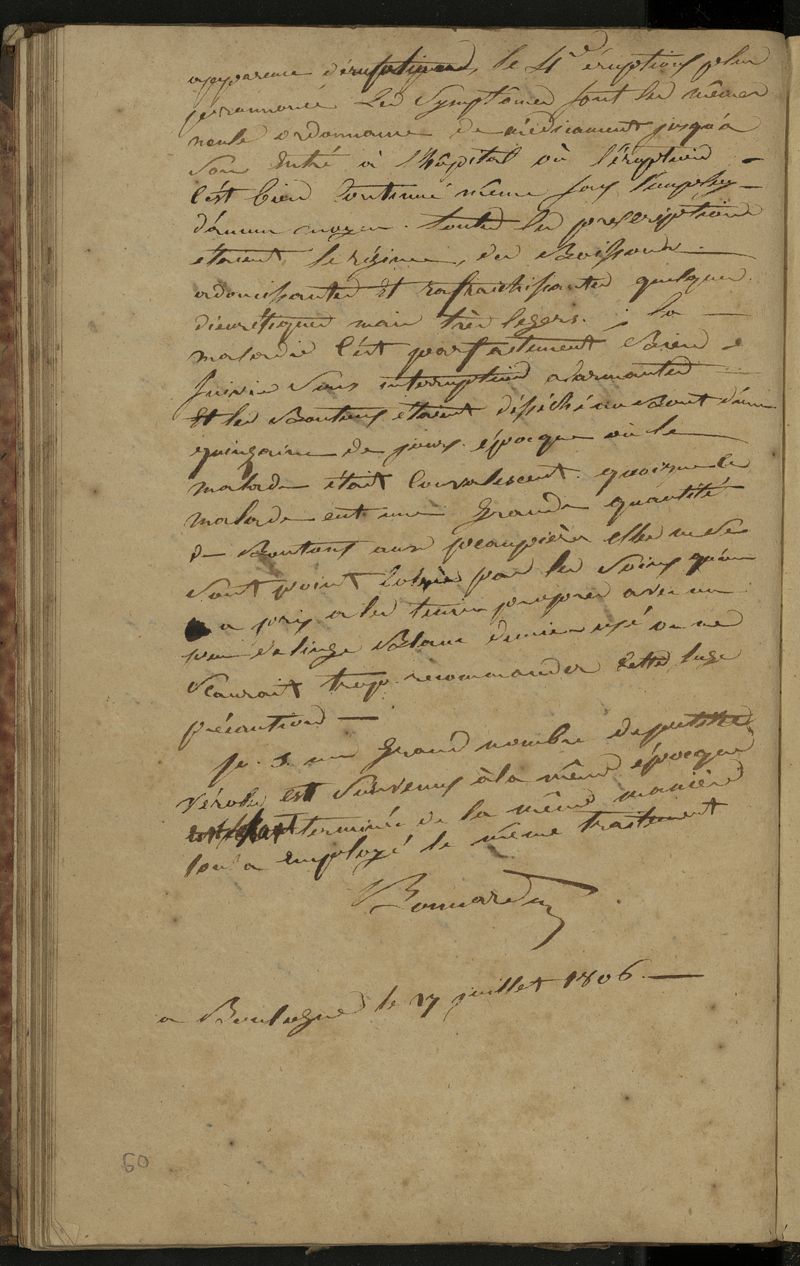 apparence d'éruptions, le 4e éruptions plus
prononcé les symptomes sont les mêmes
nulle ordonnance de médicament jusqu'a
son entré à l'hôpital où l'éruption
c'est bien continué même sans
d'aucun moyen. toutes les prescriptions
étaient le régime, des Boissons
adoucissantes et rafraichissantes quelques
diurétiques mais très legers. la
maladie c'est parfaitement bien
suivie sans interruption alarmantes
Et les Boutons étaient désséché au Bout d'une
quinzaine de jours. époque où le
malade était convalescent. quoique le
malade eut une Grande quantité
de Boutons aux paupières elles ne se
sont point par les soins qu'on
a pris a les tenir propres avec un
peu de linge Blanc demie usé on ne
sçaurait trop recommander cette sage
précaution
un Grand nombre de petites
véroles est survenus à la même époque
terminée de la même manière
l'on a employé le même traitement
Bonnardin
a Boulogne le 17 juillet 1806
60